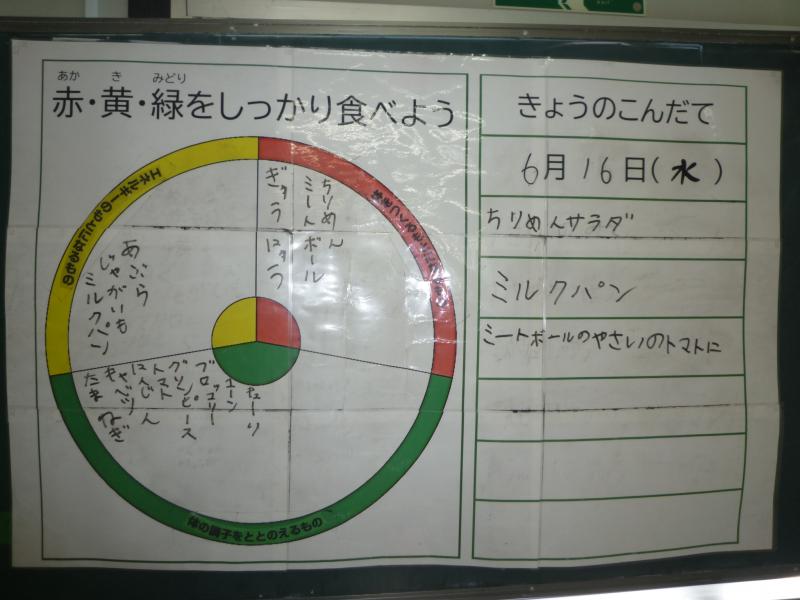 あか き みどり
赤・黄・緑をしっかり食べよう
エネルギーのもとになるもの
ちりめん
ミートボール
ぎゅうにゅう
あぶら
じゃがいも
ミルクパン
キューリ
コーン
ブロッコリー
グリンピース
トマト
にんじん
キャベツ
たまねぎ
体の調子をととのえるもの
きょうのこんだて
6月16日(水)
ちりめんサラダ
ミルクパン
ミートボールのやさいのトマトに